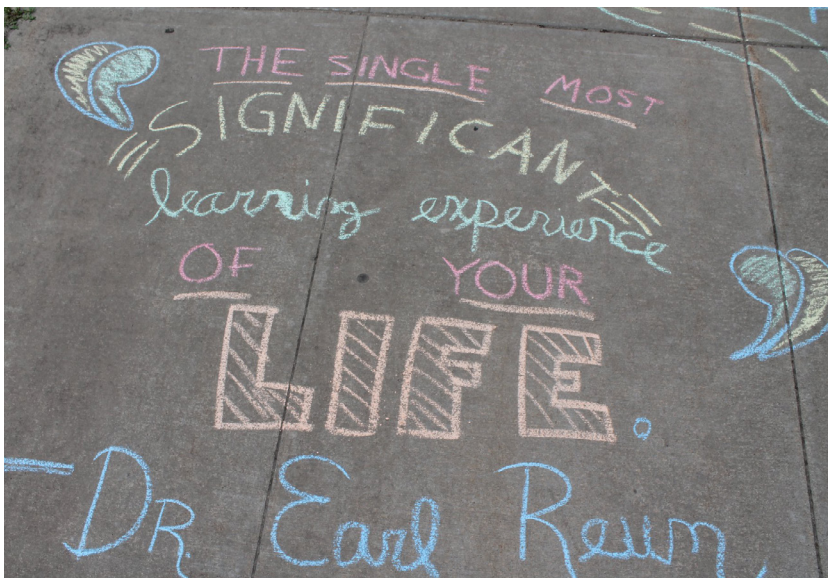 “THE SINGLE MOST
SIGNIFICANT
learning experience
OF YOUR
LIFE.”
- DR. Earl Reum